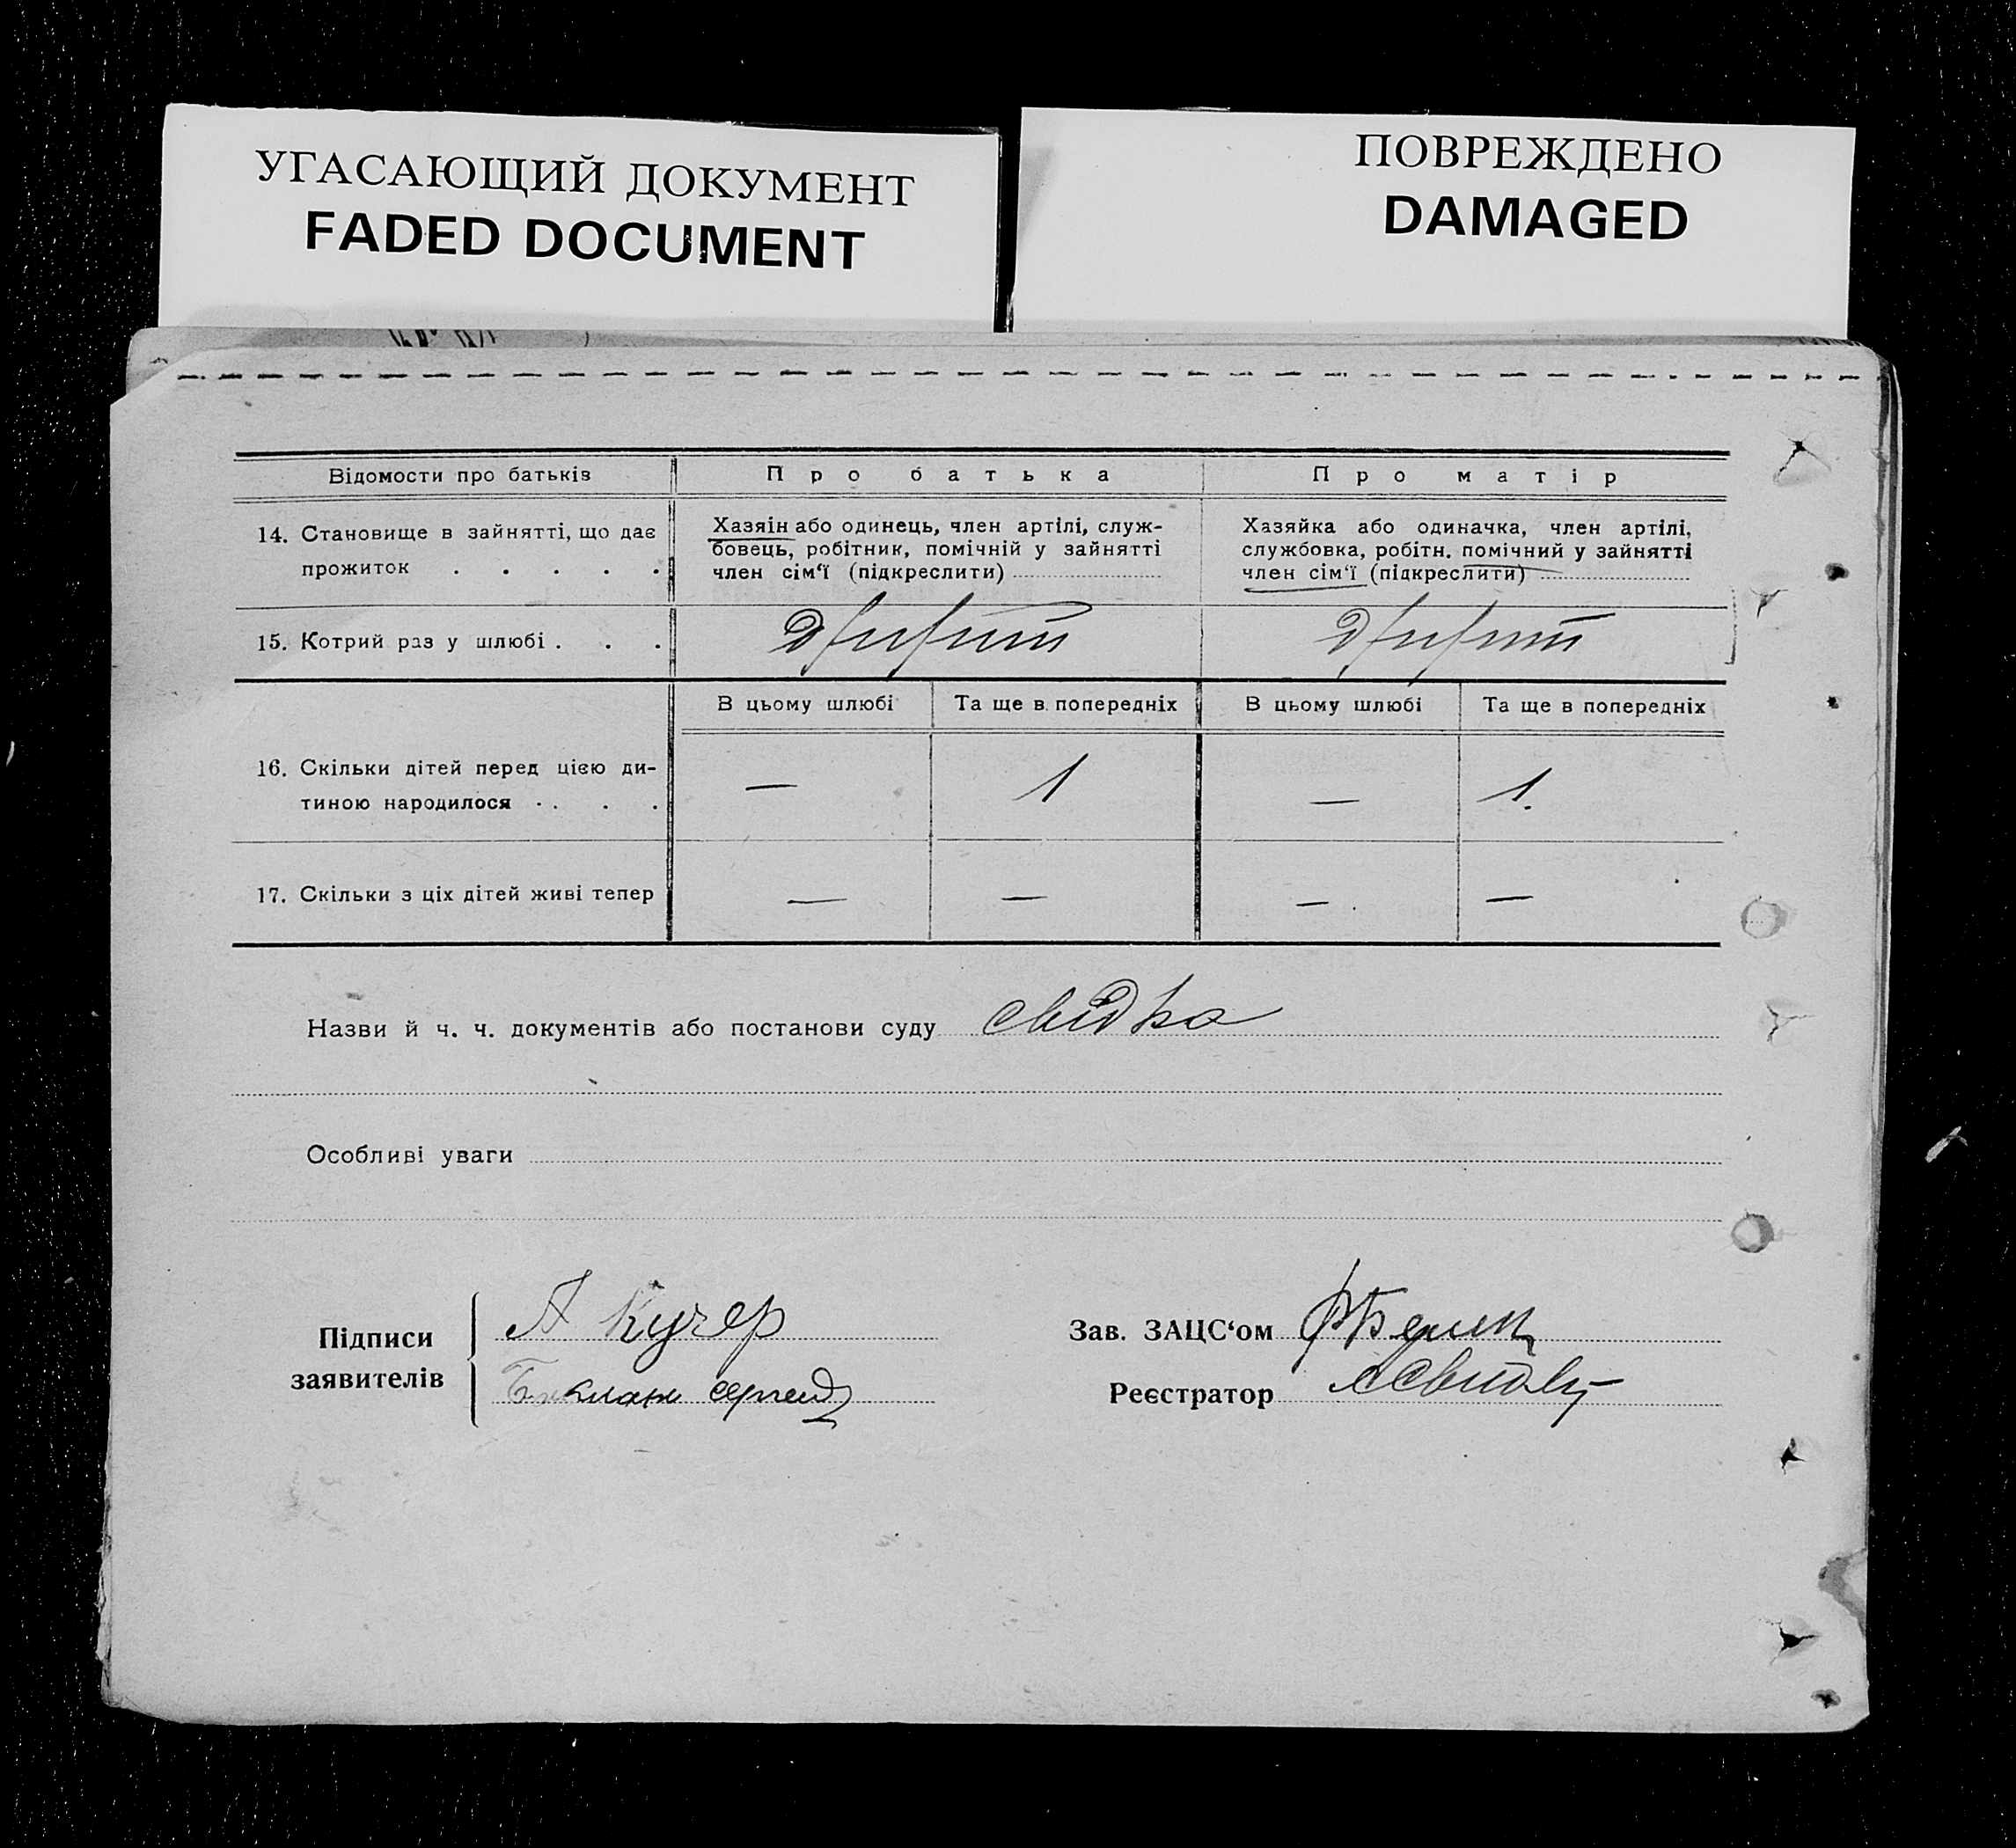 УГАСАЮЩИЙ ДОКУМЕНТ
FADED DOCUMENT
ПОВРЕЖДЕНО
DAMAGED
Відомости про батьків
Про батька
Про матір
14. Становище в зайнятті, що дає
прожиток . . . . .
Хазяін або одинець, член артілі, служ-
бовець, робітник, помічній у зайнятті
член сім‘ї (підкреслити)
Хазяйка або одиначка, член артілі,
службовка, робітн. помічний у зайнятті
член сім‘ї (підкреслити)
15. Котрий раз у шлюбі . . .
другий
другий
В цьому шлюбі
Та ще в попередніх
В цьому шлюбі
Та ще в попередніх
16. Скільки дітей перед цією ди-
тиною народилося . . . .
—
1
—
1.
17. Скільки з ціх дітей живі тепер
—
—
—
—
Назви й ч. ч. документів або постанови суду свідка
Особливі уваги
Підписи
заявителів
А Кучер
Зав. ЗАЦС‘ом
Реєстратор